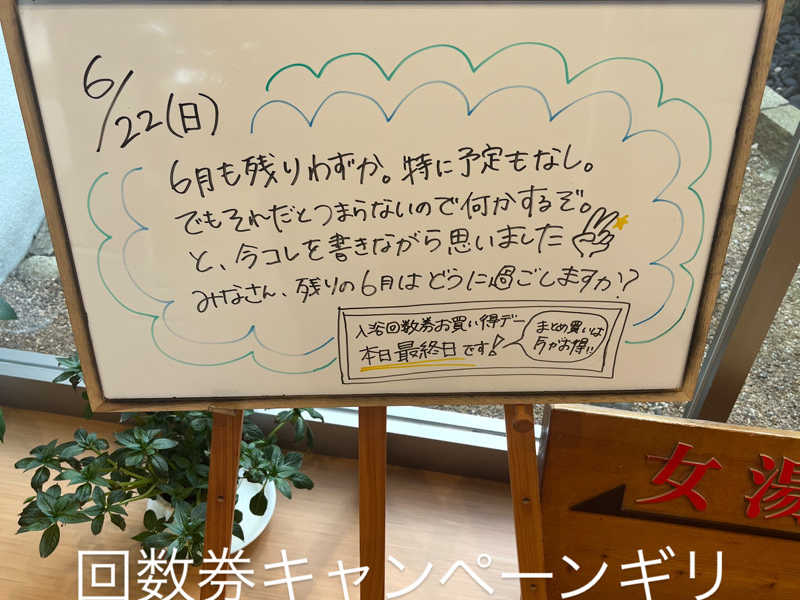 6/22(日)
6月も残りわずか。特に予定もなし。
でもそれだとつまらないので何かするぞ。
と、今コレを書きながら思いました
みなさん、残りの6月はどうに過ごしますか?
入浴回数券お買い得デー
本日最終日です!
まとめ買いは
今がお得!!
女湯
回数券キャンペーンギリ